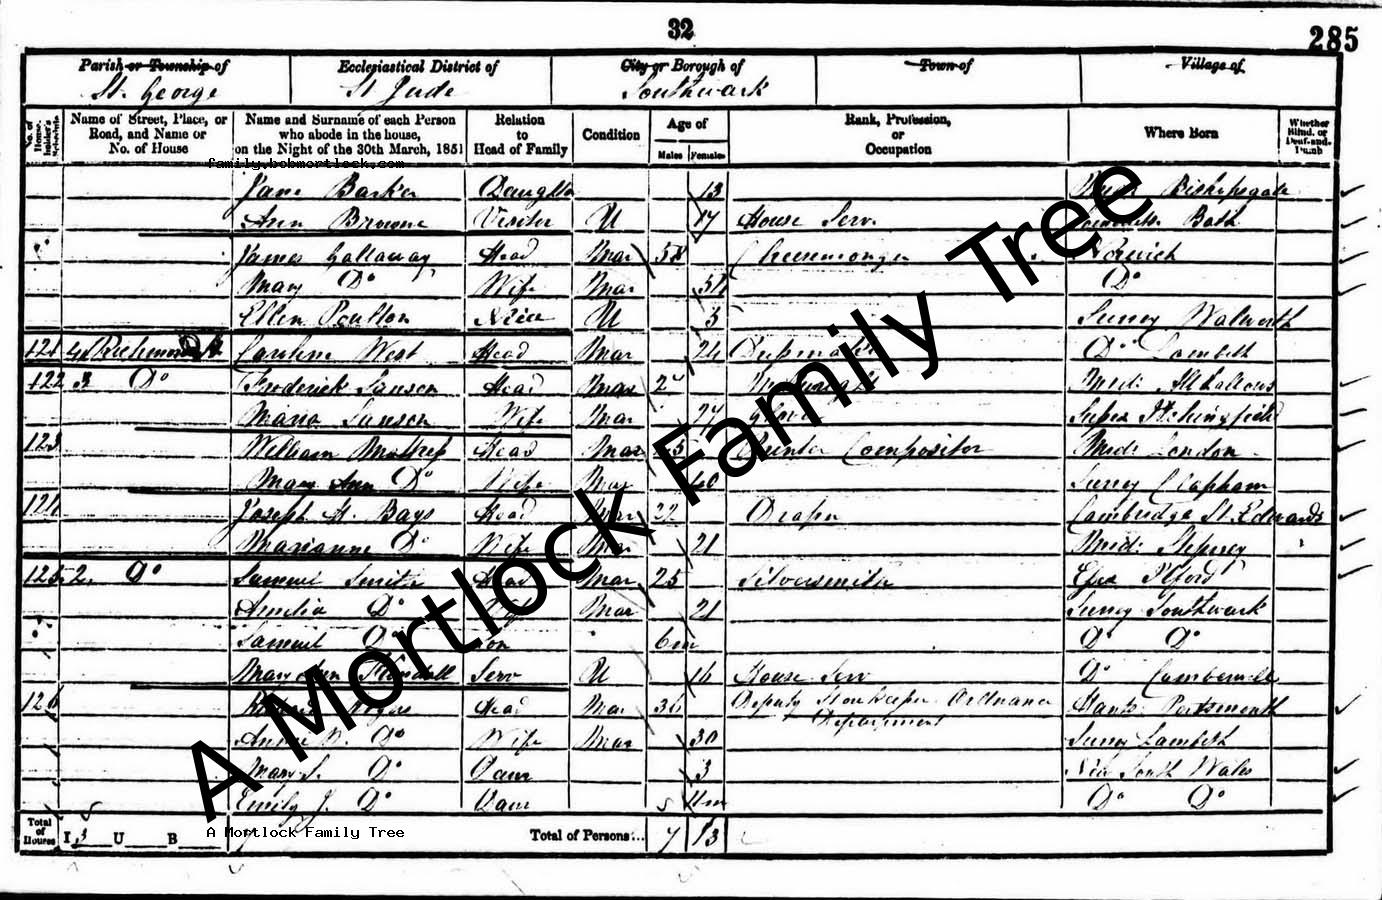 32
285
Parish or Township of
Ecclesiastical District of
City or Borough of
Town of
Village of
St. George
St Jude
Southwark
No. of House-holder's Schedule
Name of Street, Place, or Road, and Name or No. of House
Name and Surname of each Person who abode in the house, on the Night of the 30th March, 1851
Relation to Head of Family
Condition
Age of
Males
Females
Rank, Profession, or Occupation
Where Born
Whether Blind, or Deaf-and-Dumb
family.bobmortlock.com
Jane Barker Daughter 13 Bishopsgate
Ann Browne Visitor U 17 House Serv. Bath
James Gallaway Head Mar 58 Cheesemonger Norwich
Mary Do Wife Mar 51 Do
Ellen Poulton Niece U 3 Surrey Walworth
121 Richmond Caroline West Head Mar 24 Do Lambeth
122 3 Do Frederick Sanson Head Mar Midd: Allhallows
Maria Sanson Wife Mar 27
123 William Head Mar 45 Printer Compositor Midd: London
Mary Ann Do Wife Mar 40 Surrey Clapham
124 Joseph H. Bays Head Mar 22 Draper Cambridge St. Edwards
Marianne Do Wife Mar 21 Midd: Stepney
125 2. Do Samuel Smith Head Mar 25 Silversmith Essex Ilford
Amelia Do Wife Mar 21 Surrey Southwark
Samuel Do Son 6m Do Do
Mary Ann Serv U 16 House Serv Do Camberwell
126 Head Mar 36 Deputy Storekeeper Ordnance Department Hants Portsmouth
Annie Do Wife Mar 30 Surrey Lambeth
Mary S. Do Daur 3 New South Wales
Emily J. Do Daur 11m Do Do
Total of Houses
I 3 U B
Total of Persons... 7 13
A Mortlock Family Tree
A Mortlock Family Tree